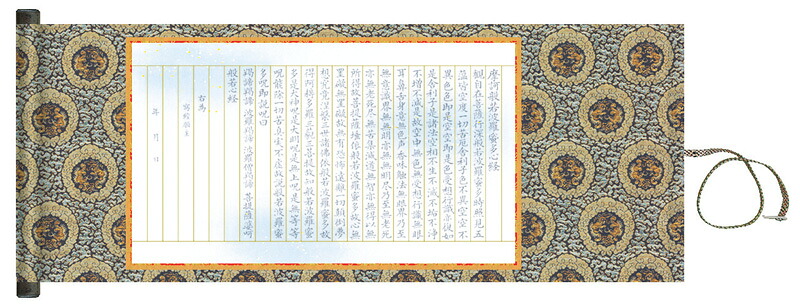 摩訶般若波羅蜜多心経
観自在菩薩行深般若波羅蜜多時照見五
蘊皆空度一切苦厄舎利子色不異空空不
異色色即是空空即是色受想行識亦復如
是舎利子是諸法空相不生不滅不垢不浄
不増不減是故空中無色無受想行識無眼
耳鼻舌身意無色声香味触法無眼界乃至
無意識界無無明亦無無明尽乃至無老死
亦無老死尽無苦集滅道無智亦無得以無
所得故菩提薩埵依般若波羅蜜多故心無
罣礙無罣礙故無有恐怖遠離一切顛倒夢
想究竟涅槃三世諸佛依般若波羅蜜多故
得阿耨多羅三藐三菩提故知般若波羅蜜
多是大神呪是大明呪是無上呪是無等等
呪能除一切苦真実不虚故説般若波羅蜜
多呪即説呪曰
羯諦羯諦 波羅羯諦 波羅僧羯諦 菩提薩婆訶
般若心経
右為
年 月 日